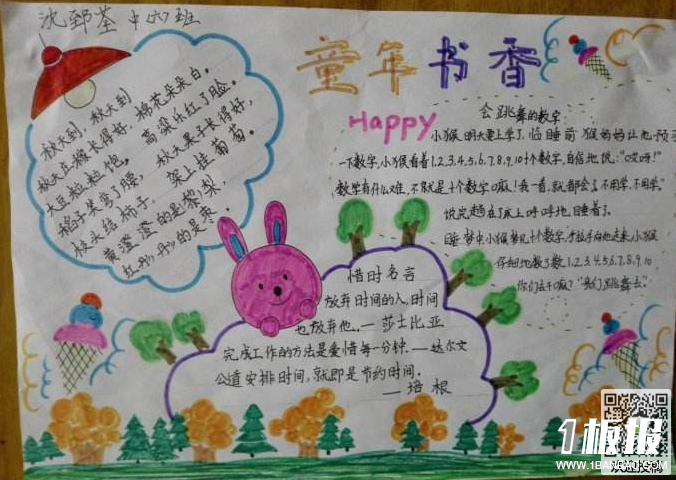 沈郅荃 中六7班
童年书香
Happy
秋天到,秋天到
秋天庄稼长得好,棉花朵朵白。
大豆粒粒饱。高粱乐红了脸。
稻子笑弯了腰,秋天果子长得好,
枝头结柿子,架上挂葡萄。
黄澄澄的是黎梨,
红彤彤的是枣。
会跳舞的数字
小猴明天要上学了,临睡前猴妈妈让他预习
一下数字,小猴看着1,2,3,4,5,6,7,8,9,10十个数字,自信地说:"哎呀!
数学有什么难,不就是十个数字嘛!我一看,就都会了,不用学,不用学。"
说完趟在床上呼呼地睡着了。
睡梦中,小猴梦见十个数字,手拉手向他走来,小猴
仔细地数了数1,2,3,4,5,6,7,8,9,10
你们去干嘛?"我们跳舞去。"
惜时名言
放弃时间的人,时间
也放弃他。—莎士比亚
完成工作的方法是爱惜每一分钟。——达尔文
公道安排时间,就即是节约时间。
——培根
1板报
WWW.1BANBAO.COM
欢迎投稿